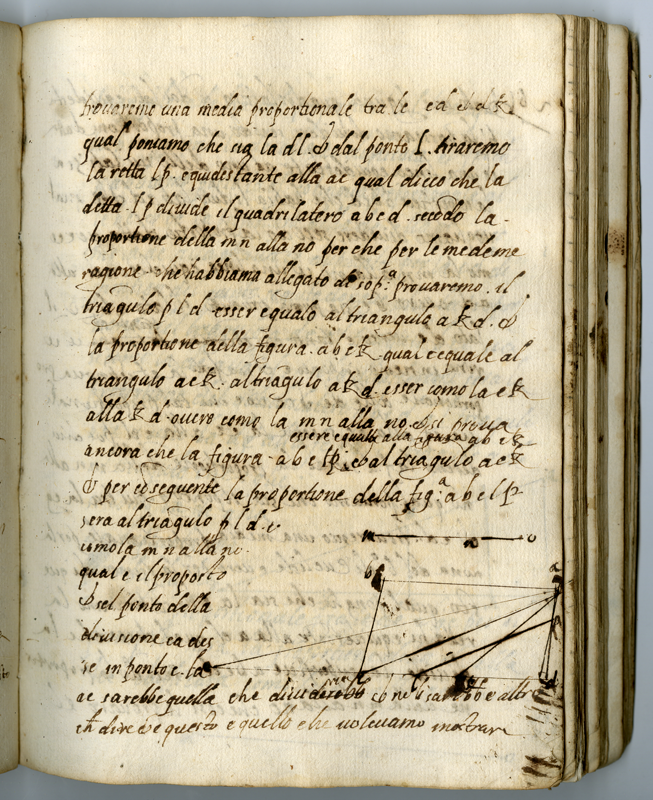 trovaremo una media proportionale tra le ed et dk
qual poniamo che sia la dl. et dal ponto l. tiraremo
la retta lp. equidestante alla ae qual dicco che la
detta. lp divide il quadrilatero abcd. secōdo la
proportione della mn alla no per che per le medeme
ragione che habbiamo allegato di sop.ª provaremo. il
triāgulo pld. esser equalo al triangulo akd. et
la proportione della figura. abck qual e equale al
triangulo aek. al triāgulo akd. esser como la ek
alla kd overo como la mn alla no. et si prova
essere equale alla figura abck
ancora che la figura abclp. et al triāgulo aek
et per cōseguente la proportione della fig.ª abclp
sera al triāgulo pld. e
como la mn alla no.
qual e il proposto
et sel ponto della
divisione cades
se in ponto c. la
ac sarebbe quella che et altro
ch dire et questo e quello che volevamo mostrare
m n o
b a
p
d